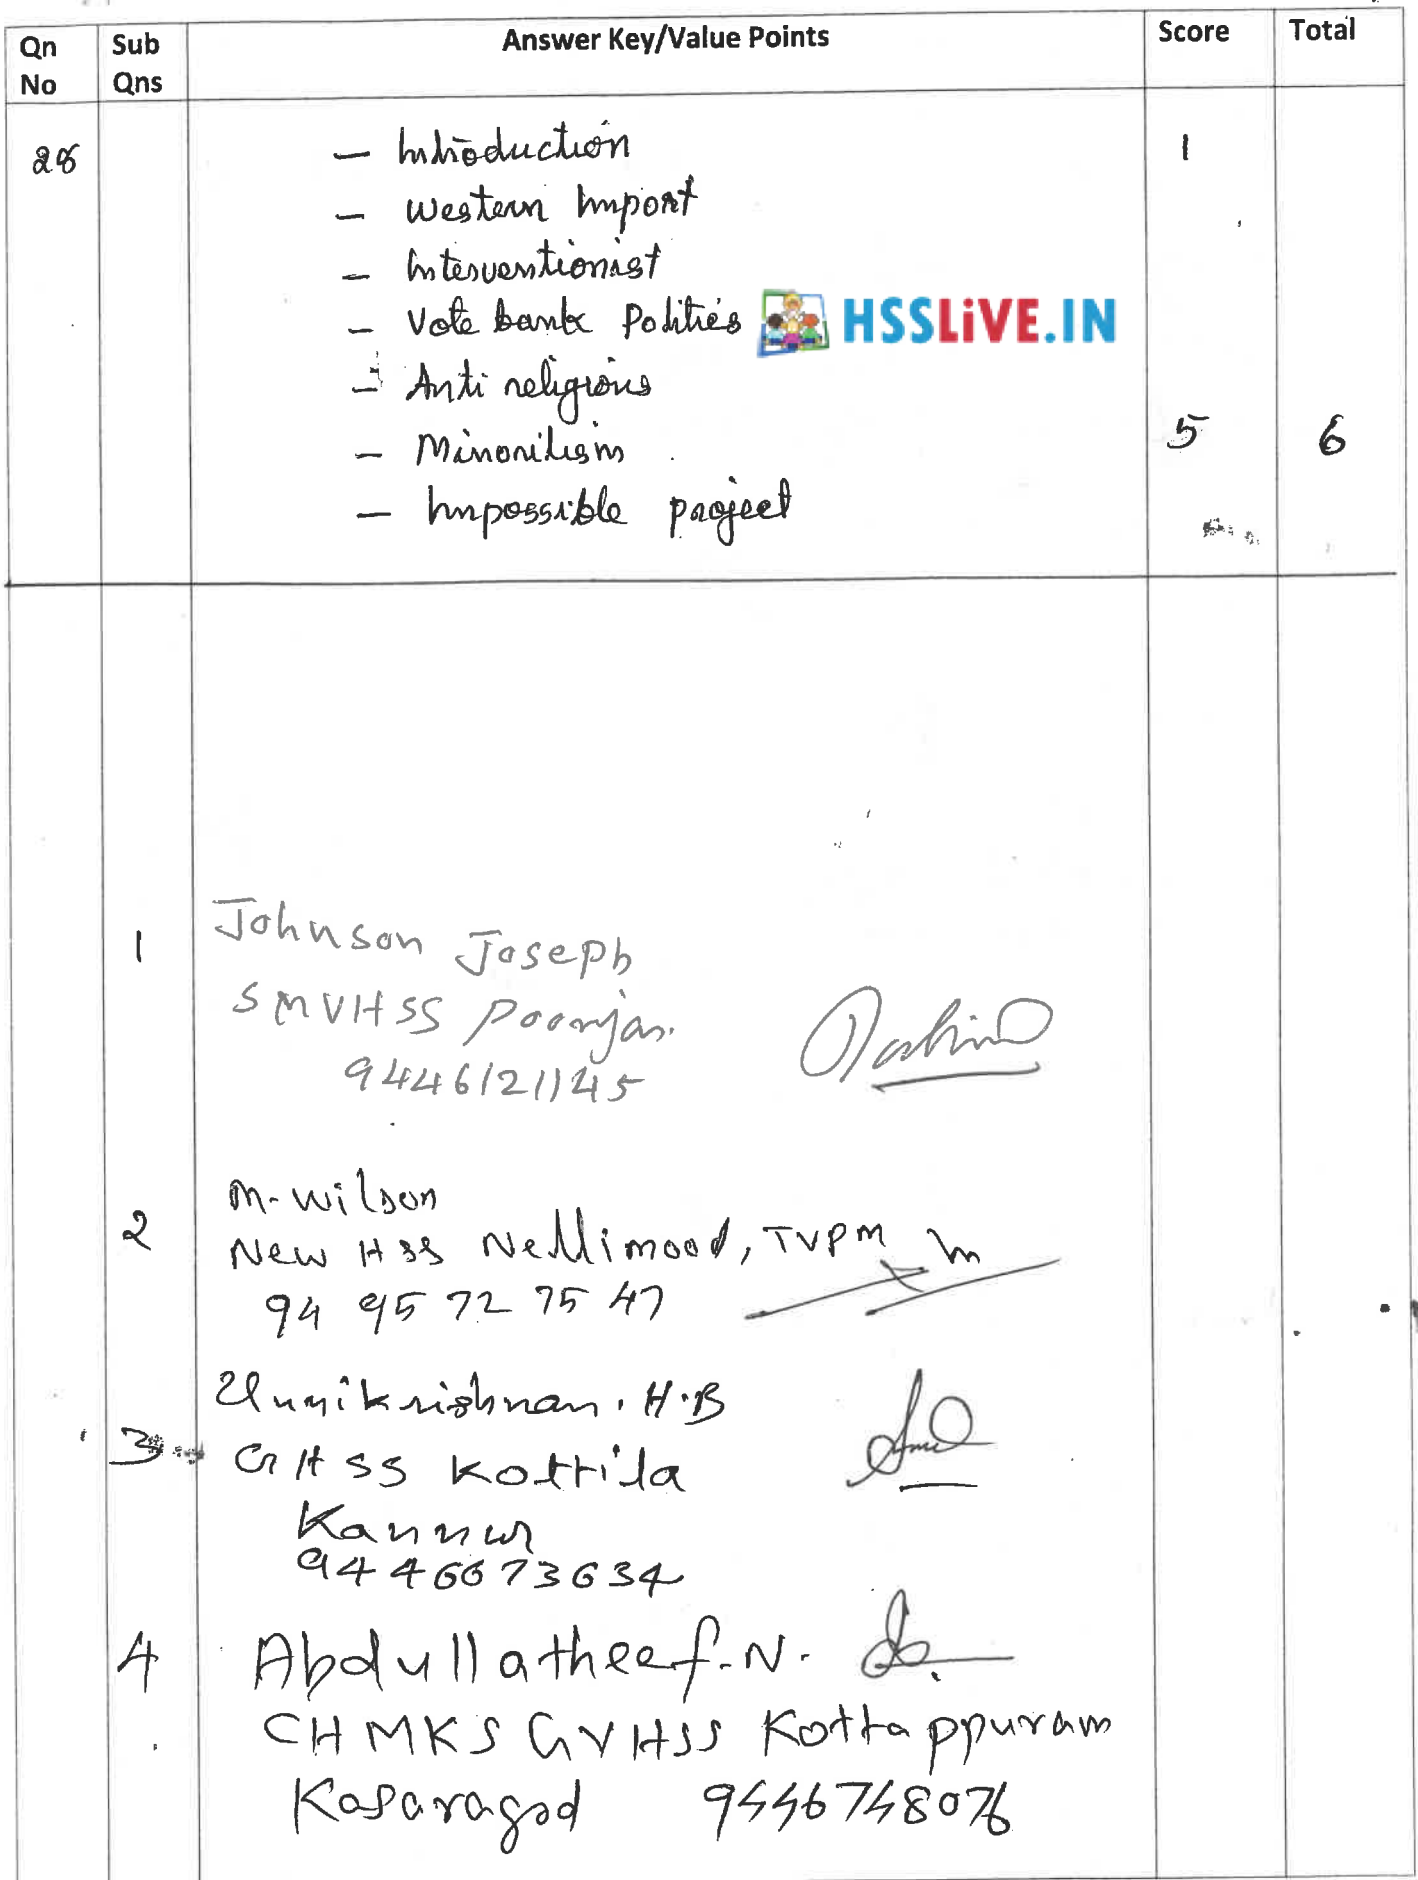 Qn No
Sub Qns
Answer Key/Value Points
Score
Total
28
— Introduction
1
— Western Import
— Interventionist
— Vote bank Politics
HSSLiVE.IN
— Anti religious
— Minoritism
5
6
— Impossible project
1
Johnson Joseph
SMVHSS Poonjar.
9446121145
2
M. Wilson
New HSS Nellimood, TVPM
94 95 72 75 47
3
Unnikrishnan. H.B
GHSS Kottila
Kannur
9446673634
4
Abdullatheef. N.
CHMKS GVHSS Kottappuram
Kasaragod 9446748076